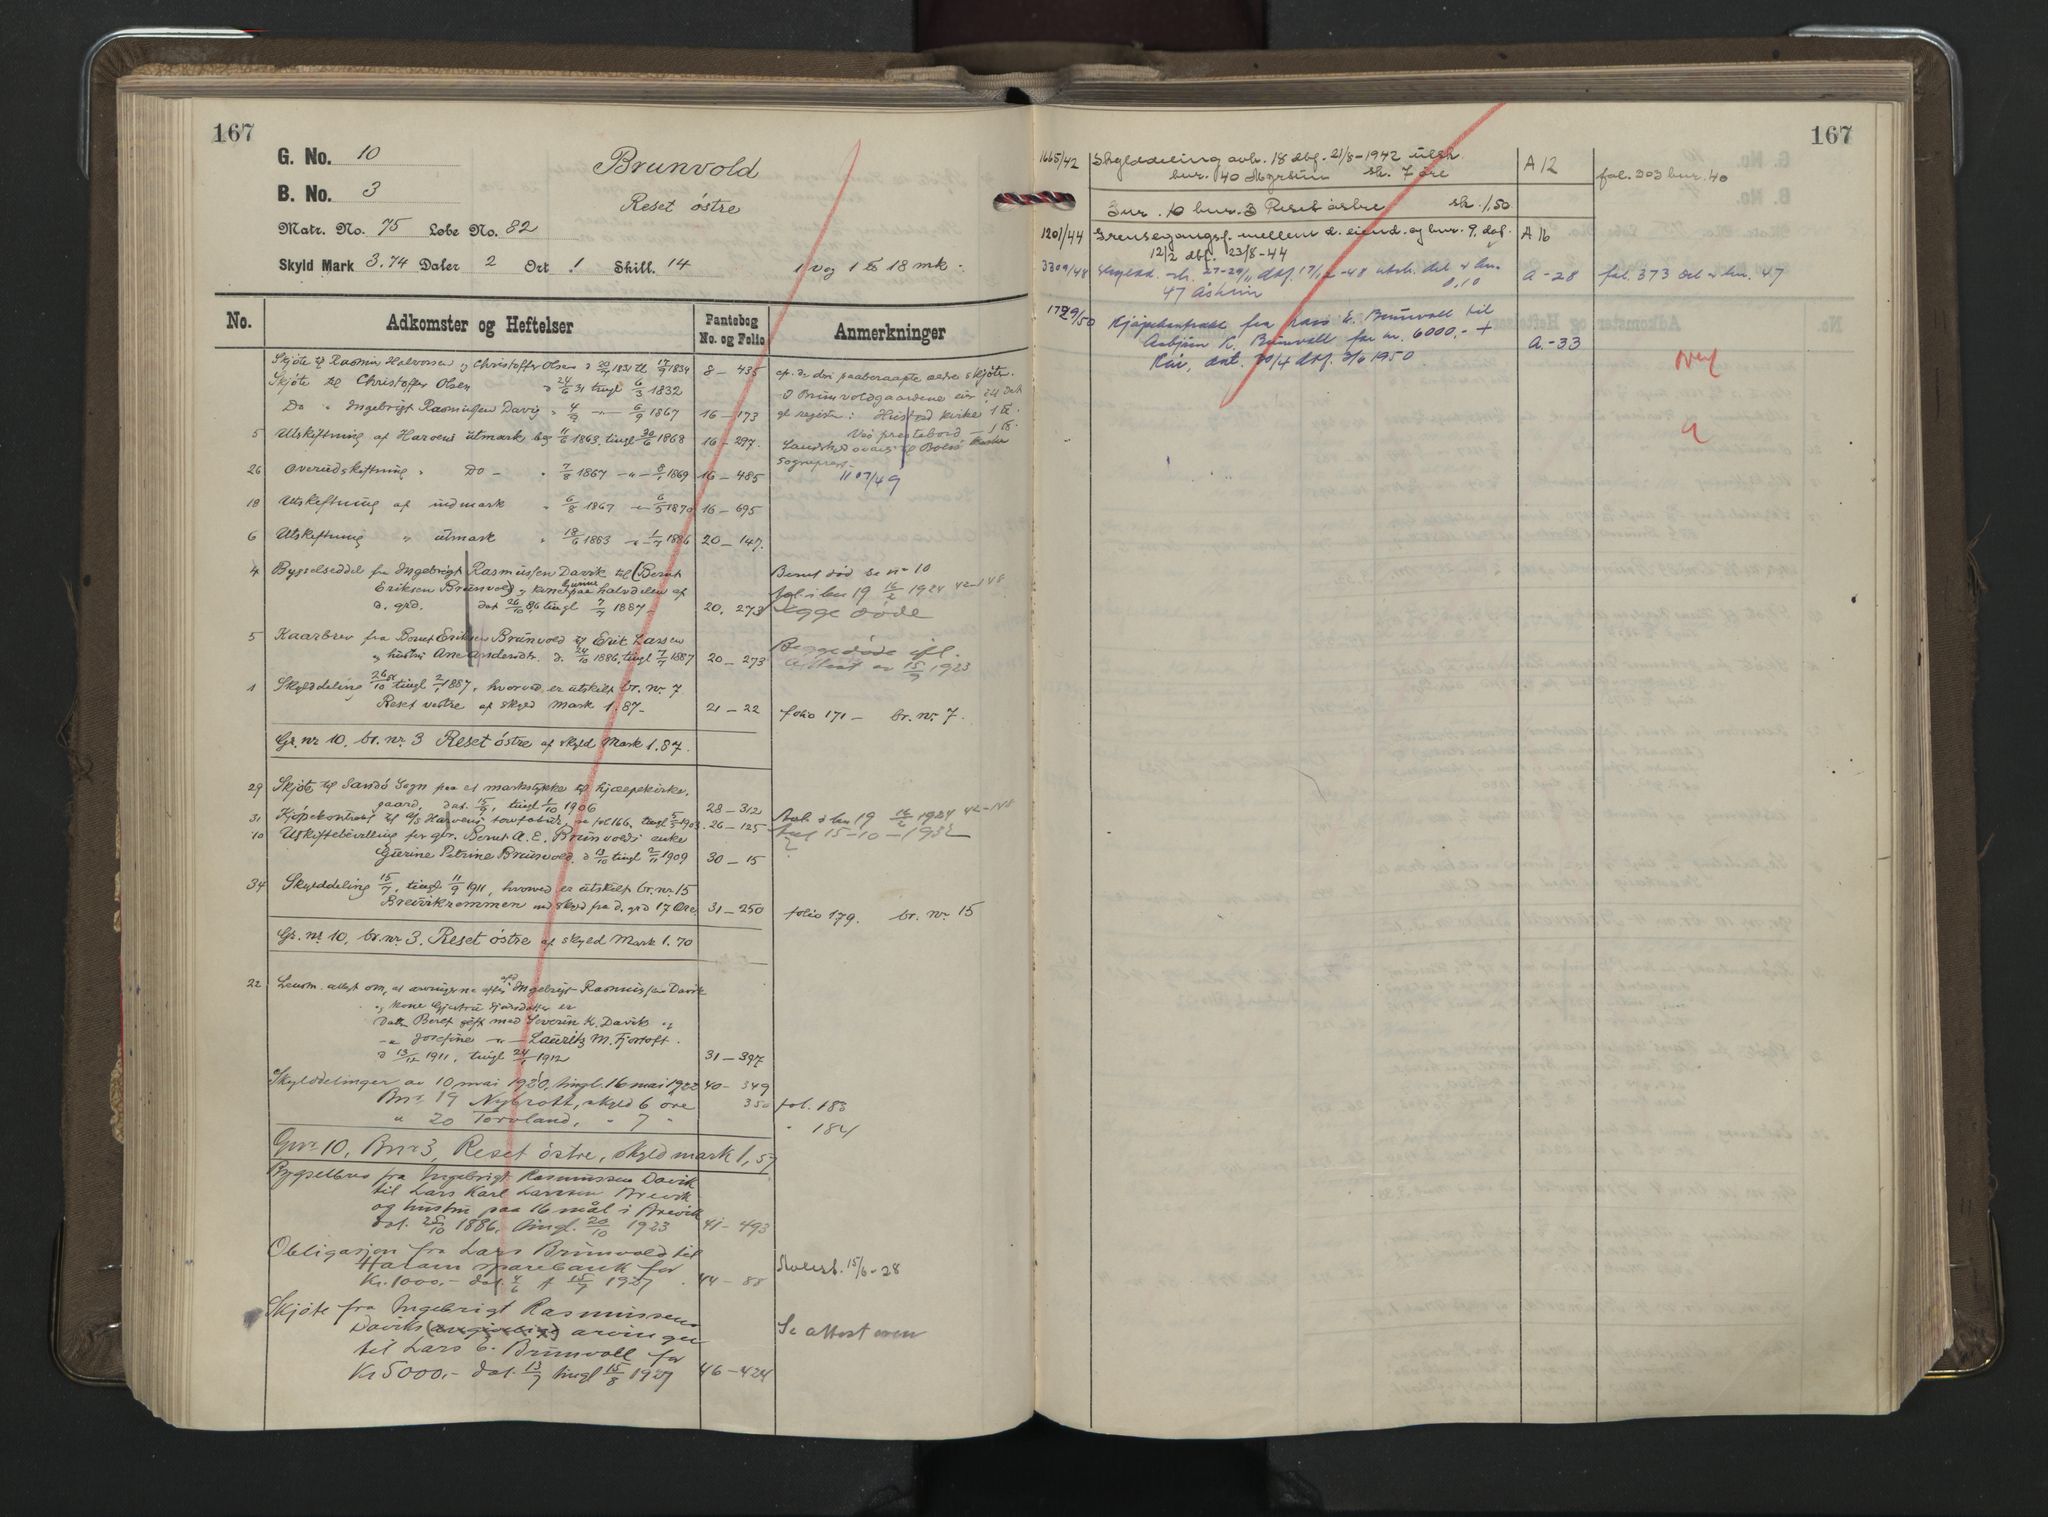 167
G. No. 10
Brunvold
B. No. 3
Reset östre
Matr. No. 75 Løbe No. 82
Skyld Mark 3.74 Daler 2 Ort 1 Skill. 14
1 vog 1 18 mk.
No.
Adkomster og Heftelser
Pantebog No. og Folio
Anmerkninger
Skjöte Rasmus Halvorsen og Christoffer Olsen 1831 17/9 1834 8 – 435
Skjöte til Christoffer Olsen 24/6 31 tingl 6/3 1832
Do " Ingebrigt Rasmussen Davig 4/9 – " – 6/9 1867 16 – 173
5 Utskiftning af Haröens utmark 11/6 1863, tingl 30/6 1868 16 – 297.
26 Overudskiftning " Do – " 7/8 1867 – " – 8/1 1869 16 – 485
18 Utskiftning af indmark " 6/8 1867 6/5 1870 16 – 695
6 Utskiftning " utmark " 18/6 1883 1/7 1886 20 – 147.
4 Bygselseddel fra Ingebrigt Rasmussen Davik til (Berut
Eriksen Brunvold) og kone Gurine paa halvdelen af
d. grd. dat 26/10 86, tingl 7/7 1887 – 20. 273
5 Kaarbrev fra Berut Eriksen Brunvold til Erik Larsen
og hustru Ane Andersdtr. d. 24/10 1886, tingl 7/7 1887 20 – 273
1 Skylddeling 26/10 tingl 2/1 1887, hvorved er utskilt br. nr. 7
Reset vestre af skyld Mark 1.87 – 21 – 22
Gr. nr 10, br. nr. 3 Reset östre af skyld Mark 1.87.
29 Skjöte til Sandö Sogn paa et markstykke til hjælpekirke,
gaard, dat. 15/9, tingl 1/10 1906 28 – 312
31 Kjöpekontrakt til A/S Haröens fol 166, tingl 1903. 26 – 125
10 Utskiftebevilling for gbr. Berut A. E. Brunvolds enke
Gurine Petrine Brunvold, d 13/10 tingl 2/11 1909 30 – 15
34 Skylddeling 15/7, tingl 11/9 1911, hvorved er utskilt br. nr. 15
Brevikremmen med skyld fra d. grd 17 Øre, 31 – 250
Gr. nr 10, br. nr. 3, Reset östre af skyld Mark 1.70
22 Lensm. attest om, at arvingerne efter afd. Ingebrigt Rasmussen Davik
og kone er
Datter Beret gift med Severin K. Davik og
– " Josefine " – Lauritz M. Fjørtoft.
d 13/12 1911, tingl 24/1 1912 31 – 397
Skylddelinger av 10 mai 1920, tingl. 16 mai 1922 40 – 349
Bnr 19 Nybrott, skyld 6 øre 350
" 20 Torvland, " 7 "
Gnr 10, Bnr 3, Reset östre, skyld mark 1,57
Bygselbrev fra Ingebrigt Rasmussen Davik
til Lars Karl Larsen Brevik
og hustru paa 16 mål i Brevik
dat. 25/10 1886, tingl. 20/10 1923 41 – 493
Obligasjon fra Lars Brunvold til
Haram sparebank for
Kr. 1000.– dat. 4/6 15/7 1927 44 – 88
Skjöte fra Ingebrigt Rasmussens
Daviks arvinger
til Lars E. Brunvoll for
Kr 5000.– dat. 13/7 tingl 15/8 1927 46 – 424
cp. de deri paaberaapte ældre skjöter.
Brunvoldgaardene
gl register: Hustad kirke 1
Veö prestebord –
Sogneprest –
1107/49
Berut död se nr 10
19 16/2 1924 42–148
Begge døde
Begge döde ifl.
Attest av 15/9 1923
folio 171 – br. nr. 7.
19 16/2 1924 42–148
15–10–1932
folio 179. br. nr. 15
fol. 183
" 184
Kvitert. 15/6–28
Se attest oven
167
1665/42 Skylddeling avh. 18 dbf. 21/8–1942 utsk.
bnr. 40 Myrstun sk. 7 øre A 12 fol. 303 bnr. 40
Gnr. 10 bnr. 3 Reset östre sk. 1,50
1201/44 Grensegangsf. mellem d. eiend. og bnr. 9, dat.
12/2 dbf. 23/8–44 A 16
3309/48 Skyldd. 27–29/11 dbf. 17/12–48 utsk. bnr.
47 Åsheim 0,10 A–28 fol. 373 bnr. 47
1729/50 Kjöpekontrakt fra Lars E. Brunvoll til
Asbjörn L. Brunvoll for kr. 6000.– +
Kår, dat. 20/4 dbf. 3/6 1950. A.–33